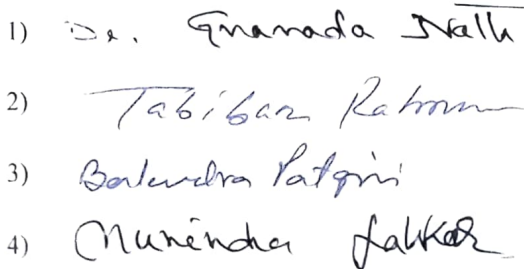 1) Dr. Gnanada Nath
2) Tabibar Rahman
3) Balendra Patgiri
4) Munindra Lahkar